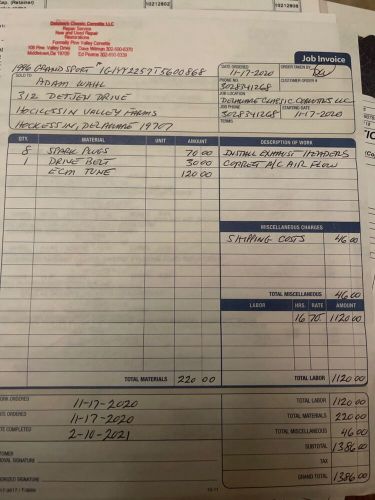 10212802
10212808
Delaware Classic Corvette LLC
Repair Service
New and Used Repair
Restorations
Formally Pine Valley Corvette
106 Pine Valley Drive Dave Wilman 302-690-6371
Middletown, De 19709 Ed Poore
Job Invoice
1996 GRAND SPORT
SOLD TO
ADAM WAHL
312 DETJEN DRIVE
HOCKESSIN VALLEY FARMS
HOCKESSIN, DELAWARE 19707
DATE ORDERED
11-17-2020
ORDER TAKEN BY
PHONE NO.
3028341268
CUSTOMER ORDER #
JOB LOCATION
DELAWARE CLASSIC CORVETTES LLC
JOB PHONE
3028341268
STARTING DATE
11-17-2020
TERMS
QTY. MATERIAL UNIT AMOUNT
8 SPARK PLUGS 70 00
1 DRIVE BELT 30 00
ECM TUNE 120 00
TOTAL MATERIALS 220 00
DESCRIPTION OF WORK
INSTALL EXHAUST HEADERS
CORRECT A/C AIR FLOW
MISCELLANEOUS CHARGES
SHIPPING COSTS 46 00
TOTAL MISCELLANEOUS 46 00
LABOR HRS. RATE AMOUNT
16 70. 1120 00
TOTAL LABOR 1120 00
WORK ORDERED 11-17-2020
DATE ORDERED 11-17-2020
DATE COMPLETED 2-10-2021
CUSTOMER
APPROVAL SIGNATURE
AUTHORIZED SIGNATURE
TOTAL LABOR 1120 00
TOTAL MATERIALS 220 00
TOTAL MISCELLANEOUS 46 00
SUBTOTAL 1386 00
TAX
GRAND TOTAL 1386 00